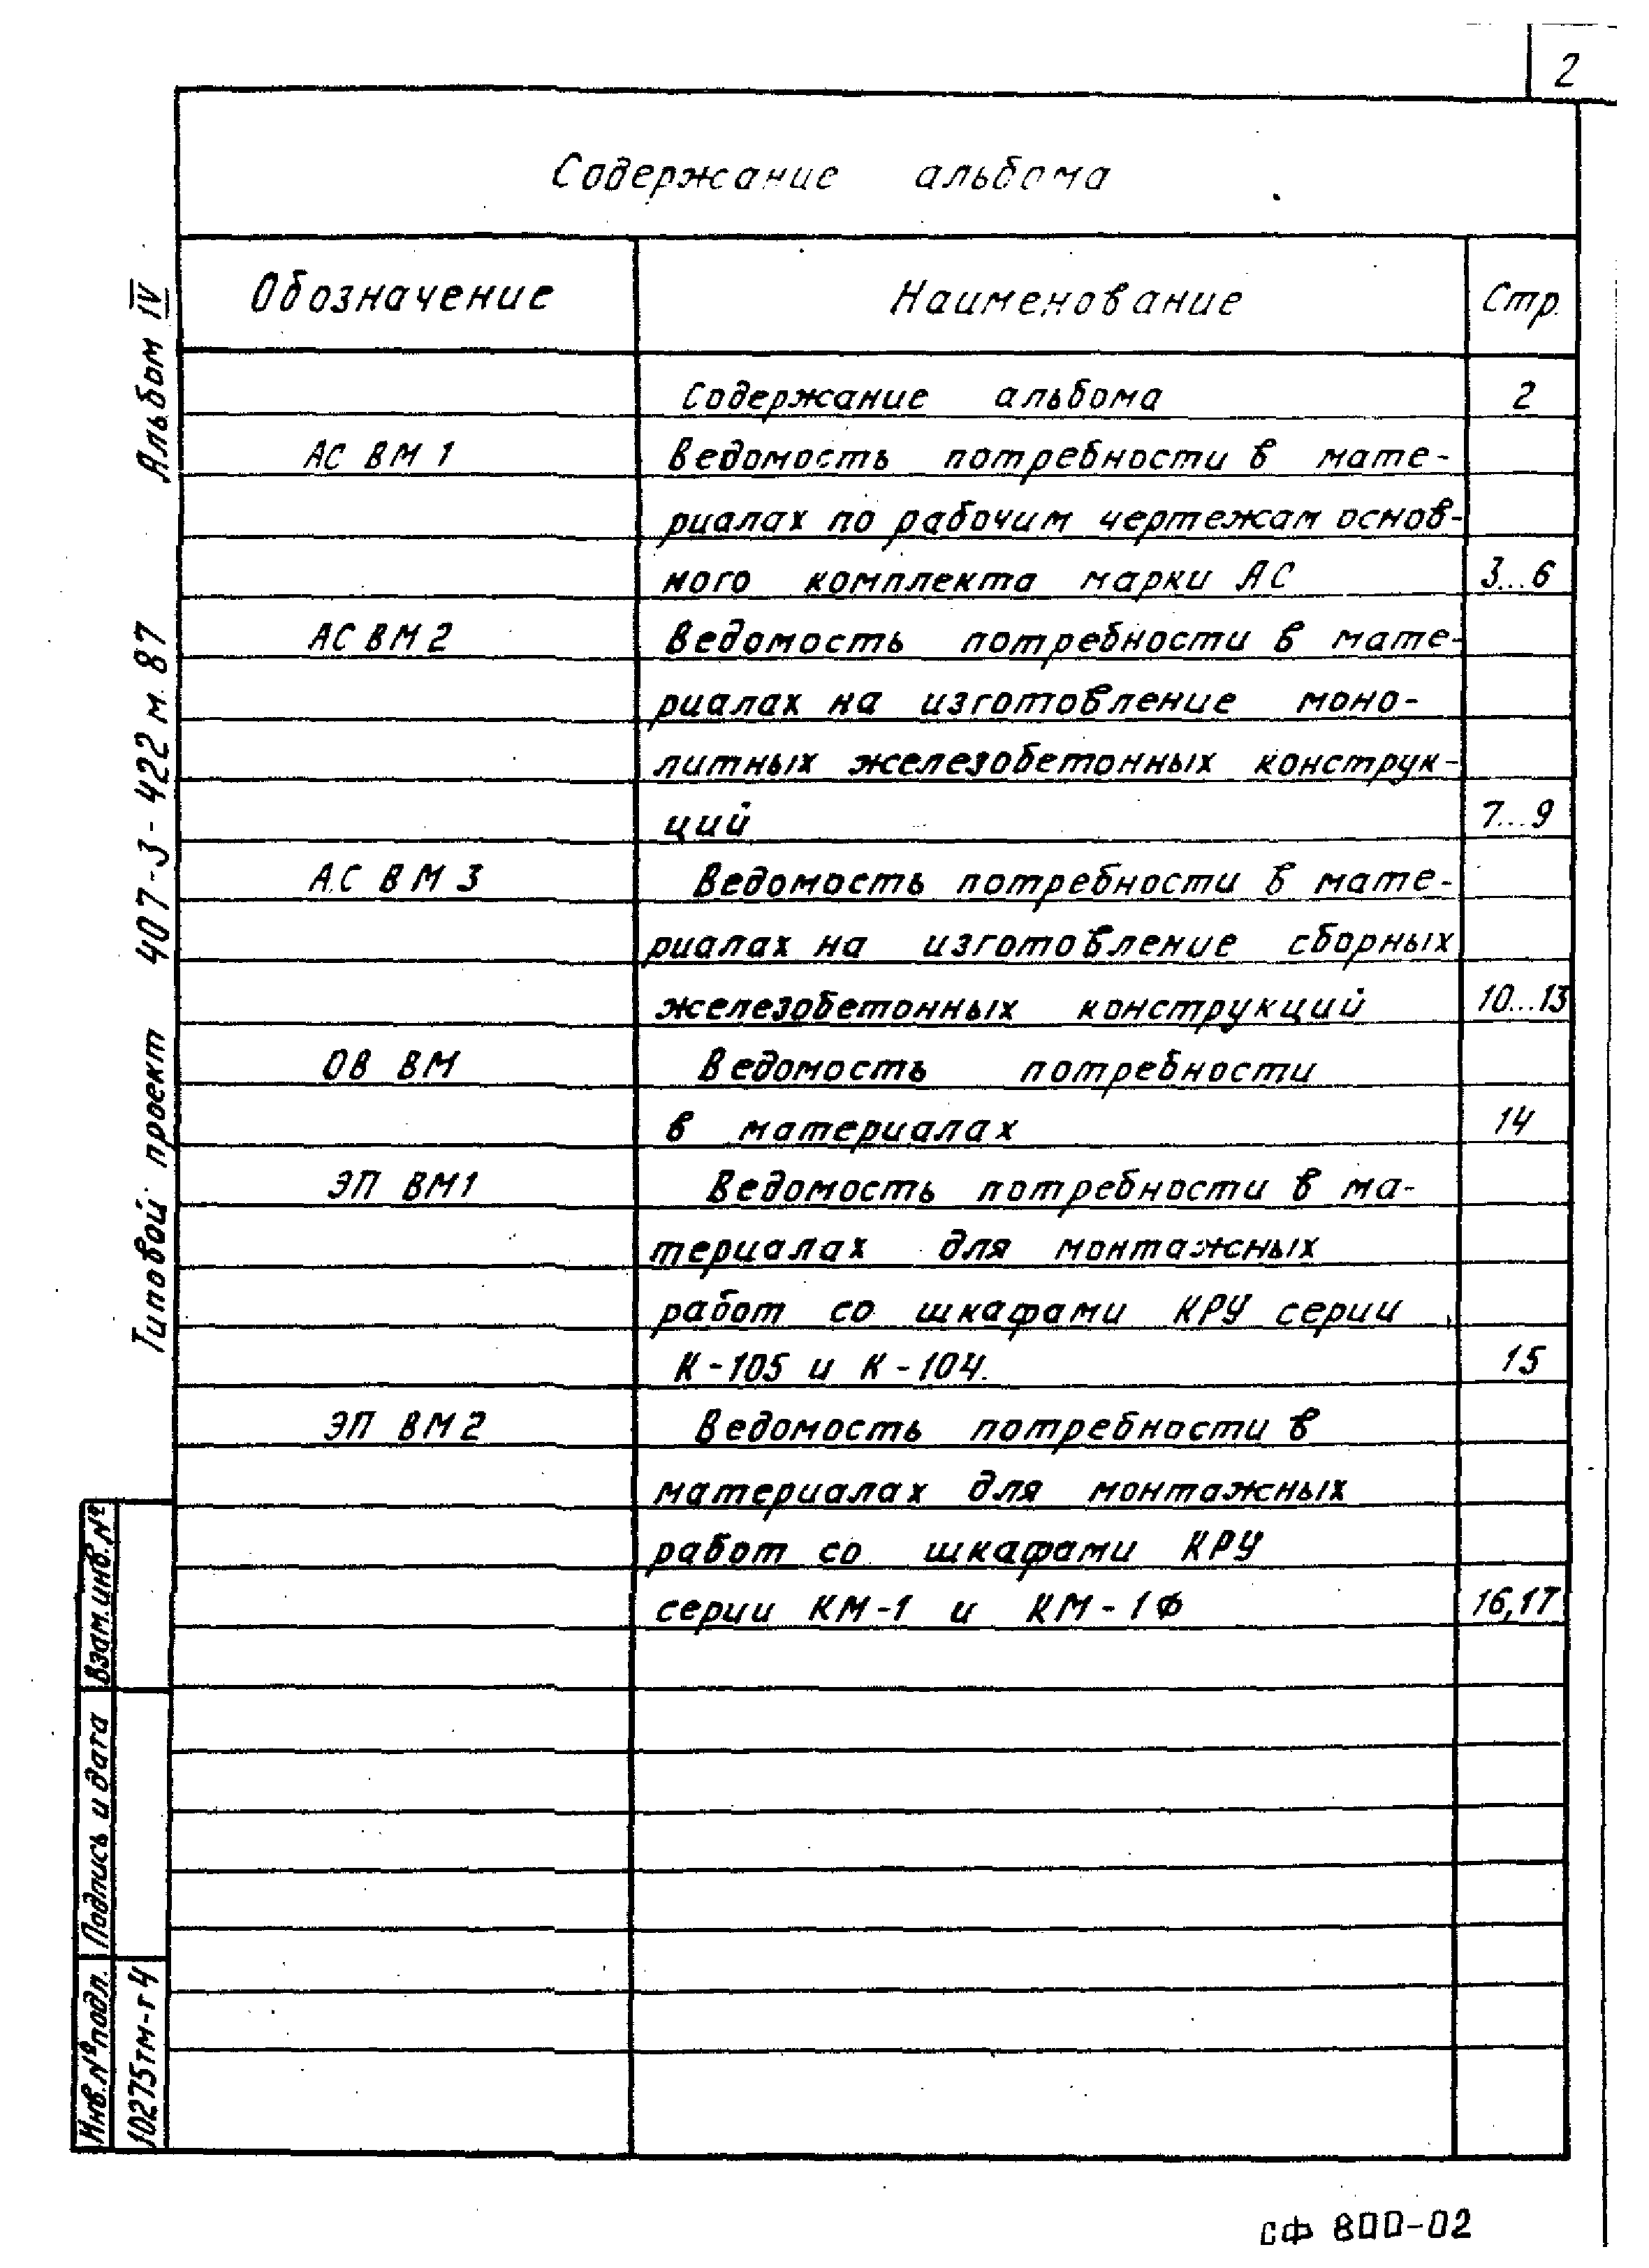 2
Содержание альбома
Обозначение Наименование Стр.
Содержание альбома 2
АС ВМ 1 Ведомость потребности в мате-
риалах по рабочим чертежам основ-
ного комплекта марки АС 3...6
АС ВМ 2 Ведомость потребности в мате-
риалах на изготовление моно-
литных железобетонных конструк-
ций 7...9
АС ВМ 3 Ведомость потребности в мате-
риалах на изготовление сборных
железобетонных конструкций 10...13
ОВ ВМ Ведомость потребности
в материалах 14
ЭП ВМ1 Ведомость потребности в ма-
териалах для монтажных
работ со шкафами КРУ серии
К-105 и К-104. 15
ЭП ВМ2 Ведомость потребности в
материалах для монтажных
работ со шкафами КРУ
серии КМ-1 и КМ-1Ф 16,17
Типовой проект 407-3-422 м. 87 Альбом IV
Взам.инв.№
Подпись и дата
Инв.№подл.
10275тм-т4
СФ 800-02